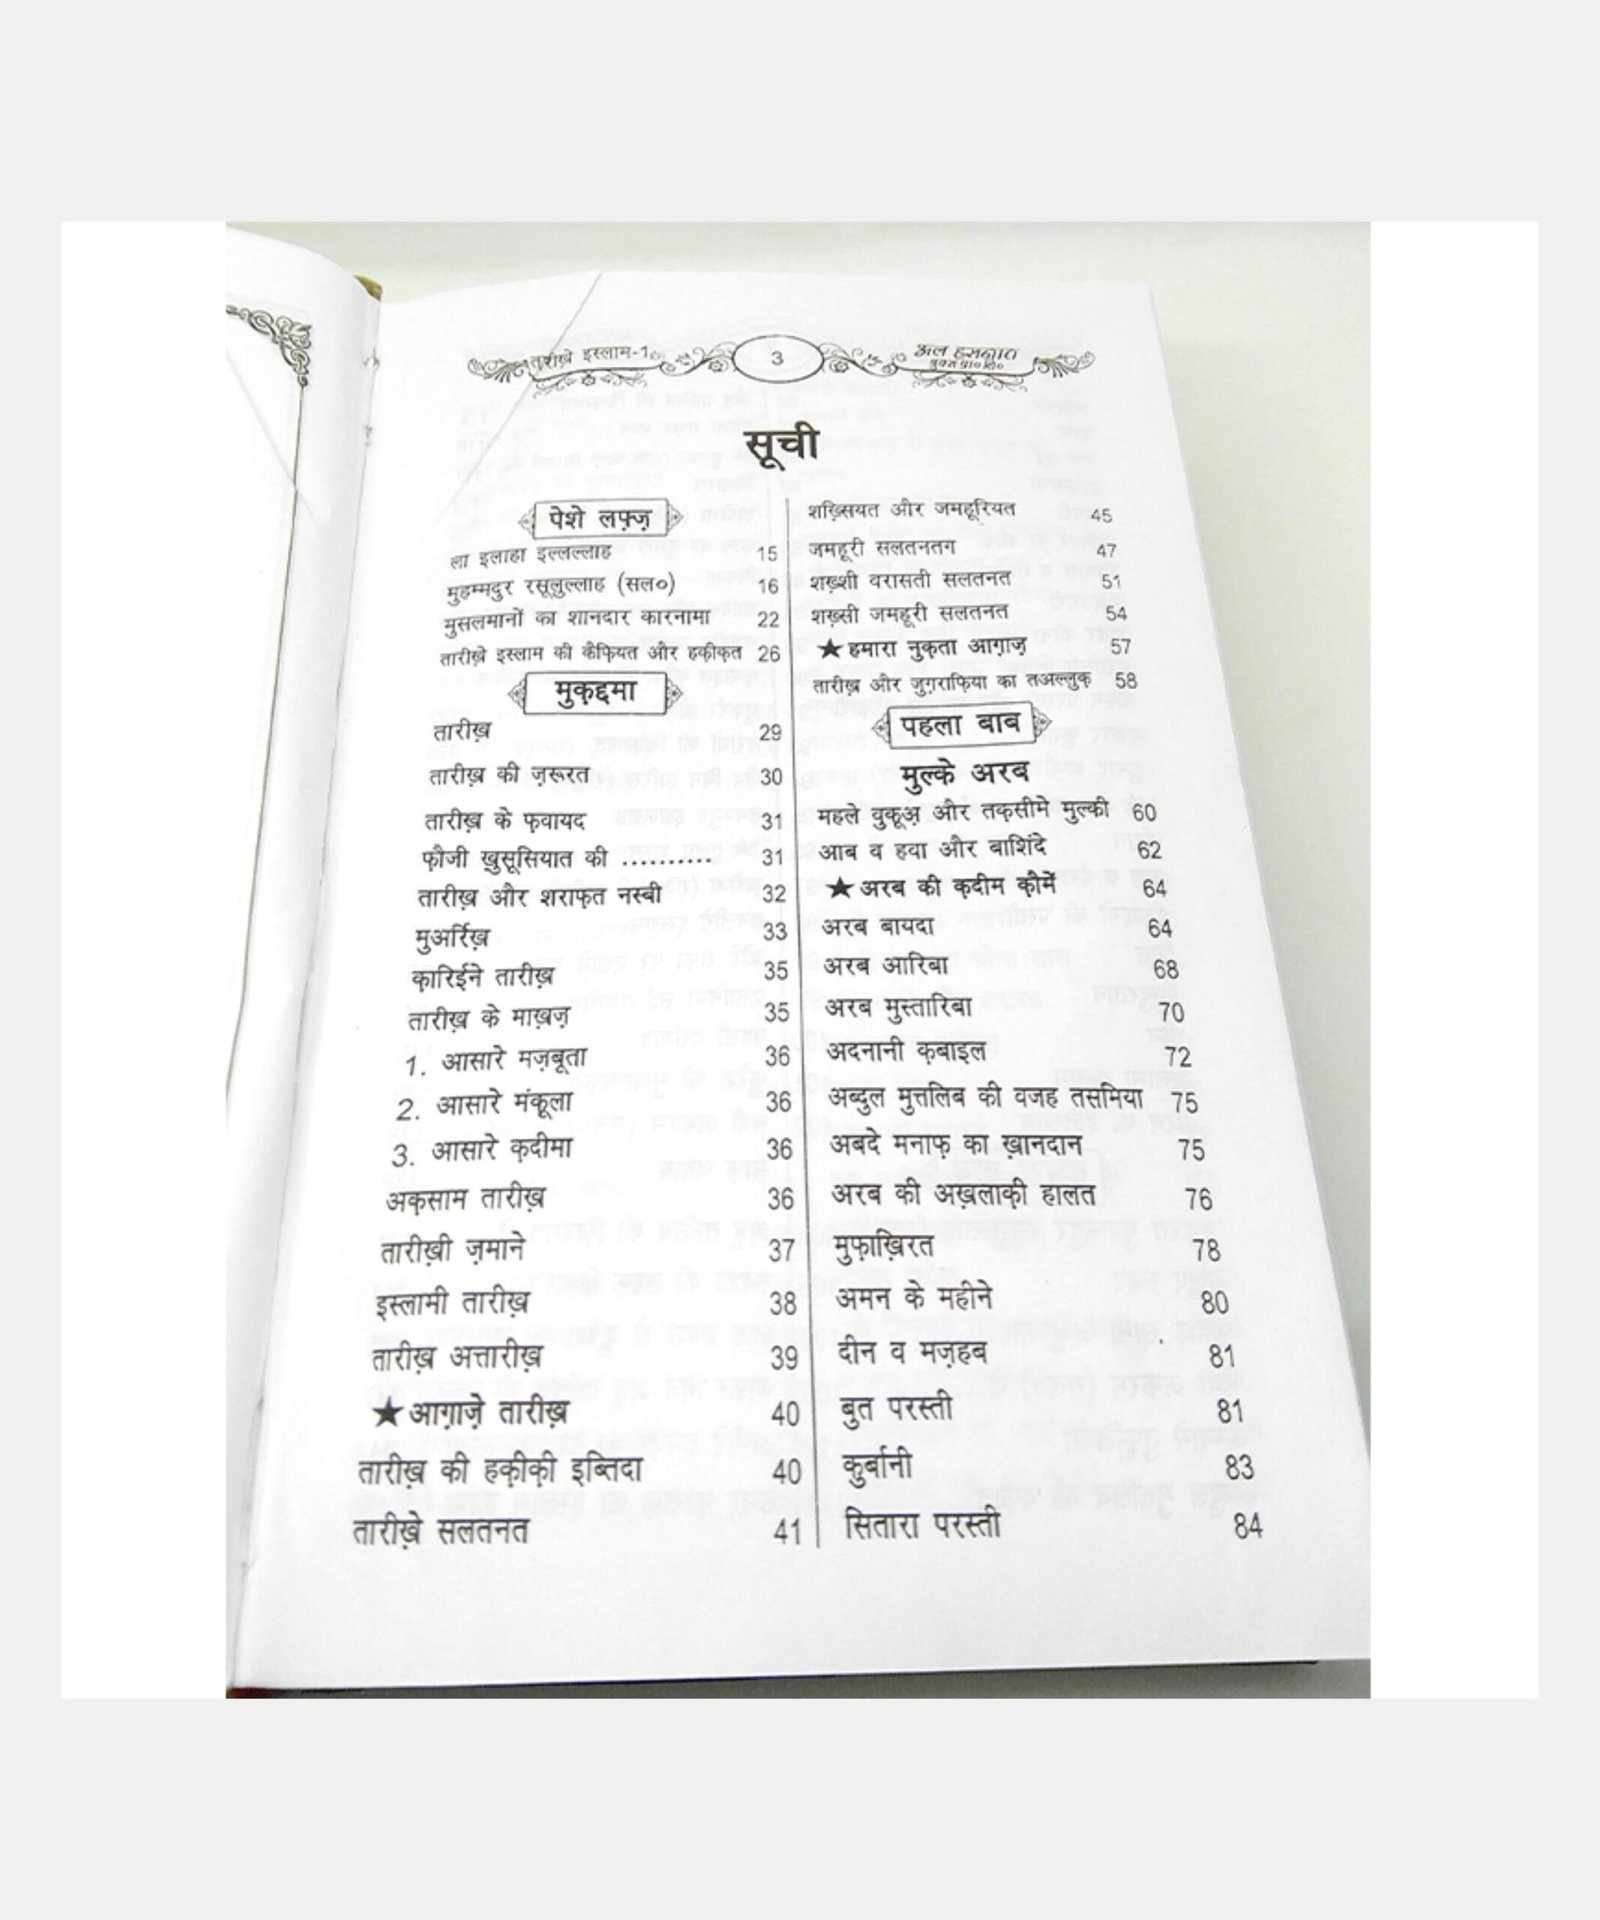 तारीख़े इस्लाम-1
3
अल हसनात
बुक्स प्रा० लि०
सूची
पेशे लफ़्ज़
ला इलाहा इल्लल्लाह 15
मुहम्मदुर रसूलुल्लाह (सल०) 16
मुसलमानों का शानदार कारनामा 22
तारीख़े इस्लाम की कैफ़ियत और हक़ीक़त 26
मुक़द्दमा
तारीख़ 29
तारीख़ की ज़रूरत 30
तारीख़ के फ़वायद 31
फ़ौजी ख़ुसूसियात की .......... 31
तारीख़ और शराफ़त नस्बी 32
मुअर्रिख़ 33
क़ारिईने तारीख़ 35
तारीख़ के माख़ज़ 35
1. आसारे मज़बूता 36
2. आसारे मंक़ूला 36
3. आसारे क़दीमा 36
अक़साम तारीख़ 36
तारीख़ी ज़माने 37
इस्लामी तारीख़ 38
तारीख़ अत्तारीख़ 39
★ आग़ाज़े तारीख़ 40
तारीख़ की हक़ीक़ी इब्तिदा 40
तारीख़े सलतनत 41
शख़्सियत और जमहूरियत 45
जमहूरी सलतनतग 47
शख़्शी वरासती सलतनत 51
शख़्सी जमहूरी सलतनत 54
★ हमारा नुक़ता आग़ाज़ 57
तारीख़ और जुग़राफ़िया का तअल्लुक़ 58
पहला बाब
मुल्के अरब
महले वुक़ूअ़ और तक़सीमे मुल्की 60
आब व हवा और बाशिंदे 62
★ अरब की क़दीम क़ौमें 64
अरब बायदा 64
अरब आरिबा 68
अरब मुस्तारिबा 70
अदनानी क़बाइल 72
अब्दुल मुत्तलिब की वजह तसमिया 75
अबदे मनाफ़ का ख़ानदान 75
अरब की अख़लाक़ी हालत 76
मुफ़ाख़िरत 78
अमन के महीने 80
दीन व मज़हब 81
बुत परस्ती 81
क़ुर्बानी 83
सितारा परस्ती 84